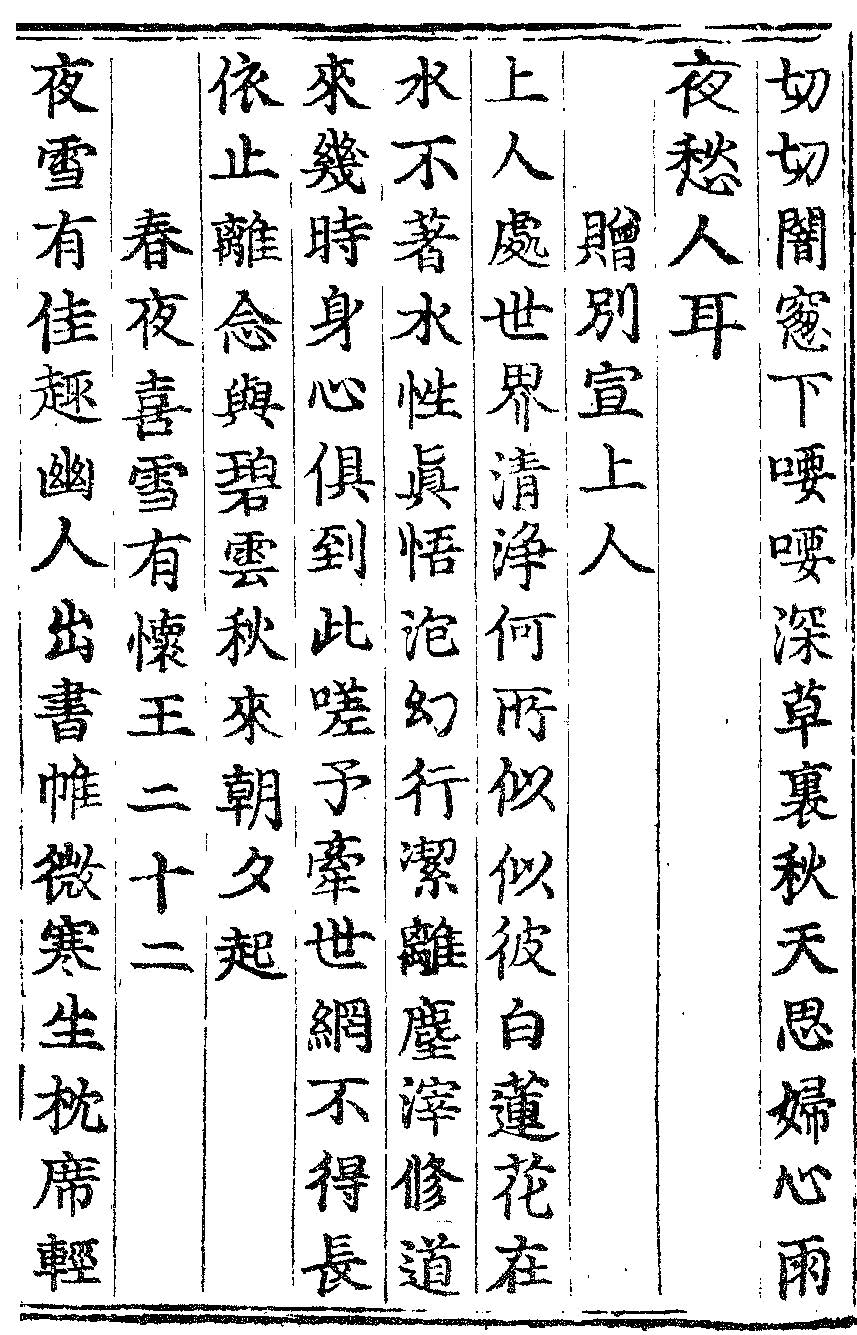 切切闇窓下喓喓深草裏秋天思婦心雨
夜愁人耳
贈別宣上人
上人處世界清浄何所似似彼白蓮花在
水不著水性眞悟泡幻行潔離塵滓修道
來幾時身心俱到此嗟予牽世網不得長
依止離念與碧雲秋來朝夕起
春夜喜雪有懷王二十二
夜雪有佳趣幽人出書帷微寒生枕席輕